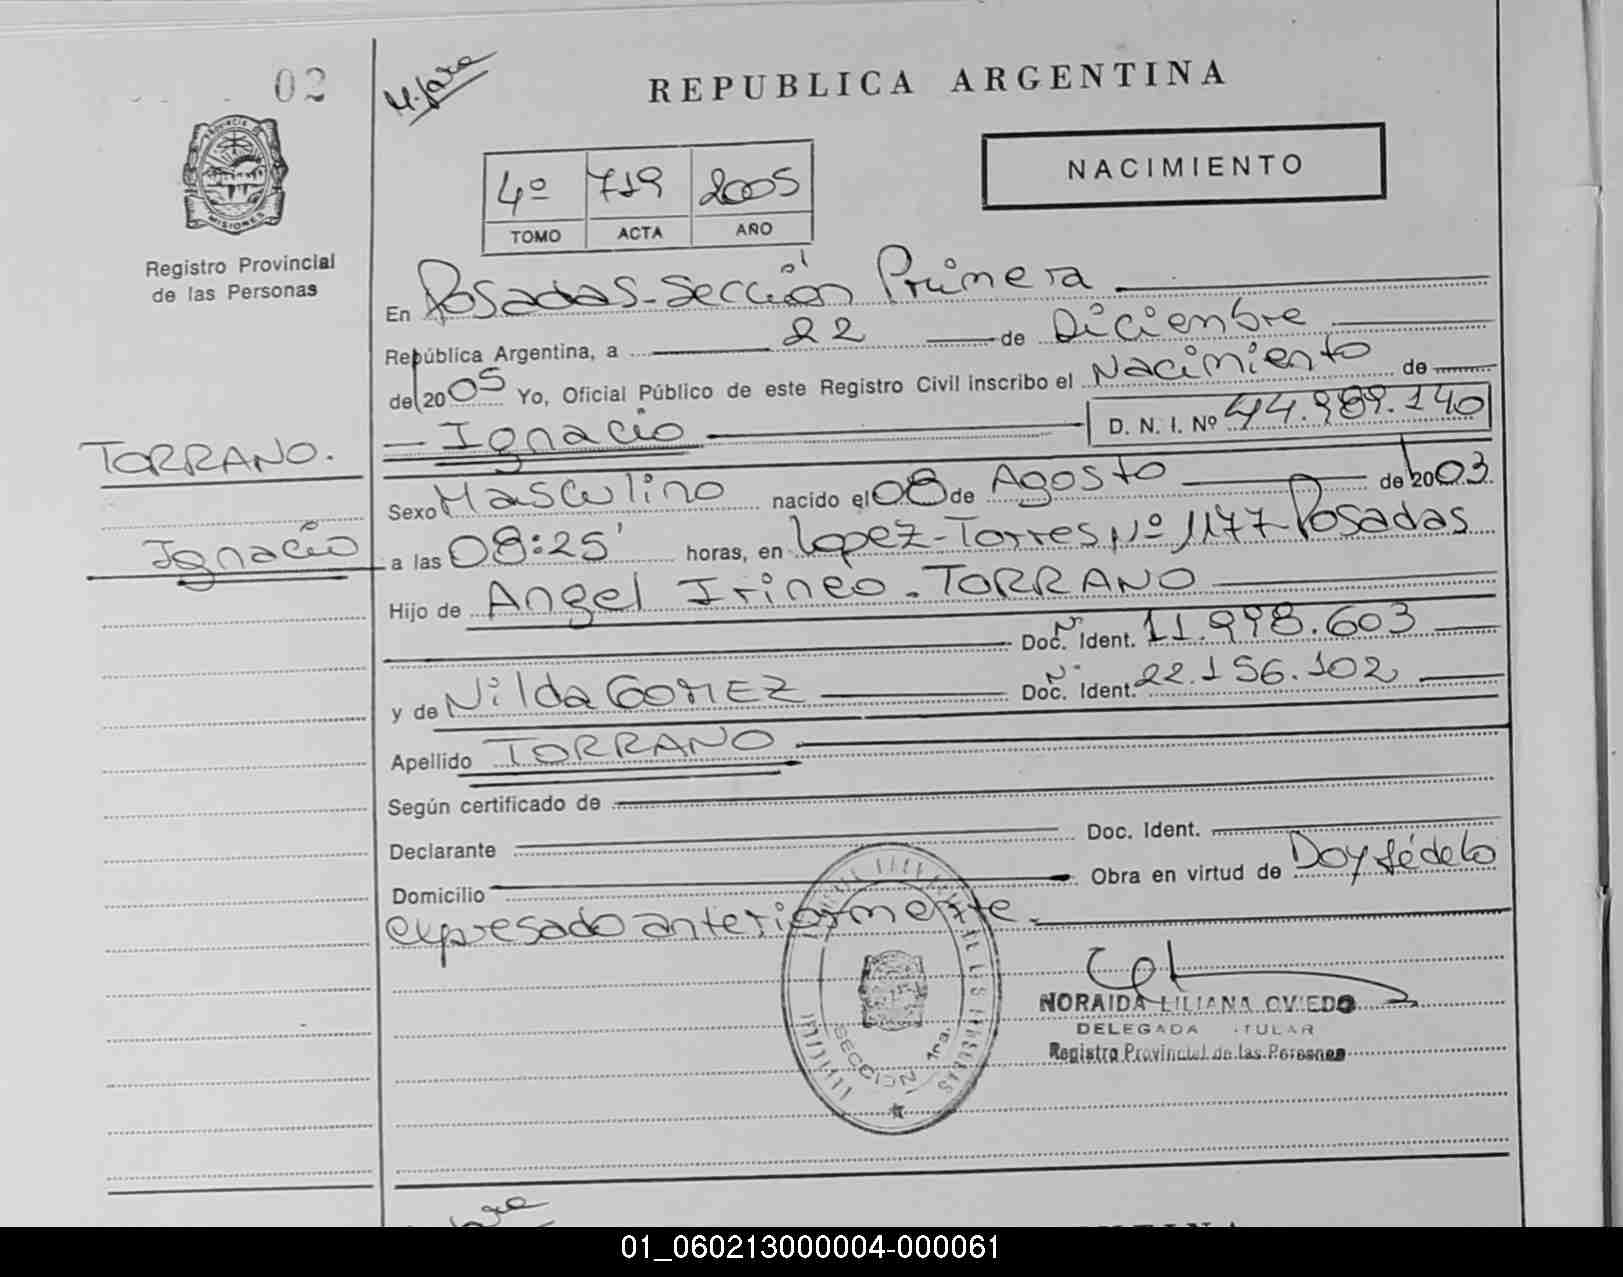 02
REPUBLICA ARGENTINA
NACIMIENTO
4º 719 2005
TOMO ACTA AÑO
PROVINCIA DE
MISIONES
Registro Provincial
de las Personas
En Posadas-Sección Primera
República Argentina, a 22 de Diciembre
del 2005 Yo, Oficial Público de este Registro Civil inscribo el Nacimiento de
Ignacio D. N. I. Nº 44.989.140
TORRANO.
Ignacio
Sexo Masculino nacido el 08 de Agosto de 2003.
a las 08:25' horas, en Lopez-Torres Nº 1177 Posadas
Hijo de Angel Irineo. TORRANO
Doc. Ident. 11.998.603
y de Nilda GOMEZ Doc. Ident. 22.156.102
Apellido TORRANO
Según certificado de
Declarante Doc. Ident.
Domicilio Obra en virtud de Doy fé de lo
expresado anteriormente.
NORAIDA LILIANA OVIEDO
DELEGADA TITULAR
Registro Provincial de las Personas
SECCION 1ra.
01_060213000004-000061